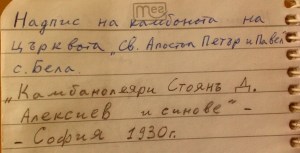 Mes
Надпис на камбоната на
църквата „Св. Апостол Петър и Павел"
с. Бела.
„Камбанолеяри Стоянъ Д.
Алексиев и синове" –
– София 1930г.